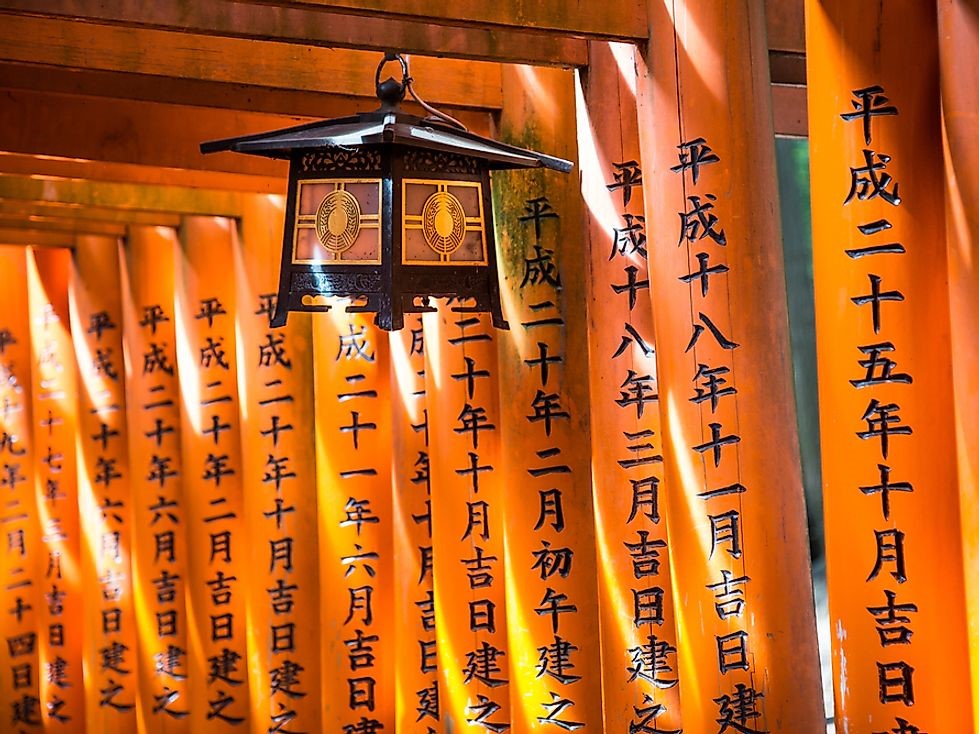 平成二十五年十月吉日
平成十八年十一月吉日建
平成十八年三月吉日建之
平成二十年二月初午建之
二十年十月吉日建之
年十月吉日建
成二十一年六月吉日建
平成二十年十月吉日建之
平成二十年二月吉日建之
平成二十年六月吉日建之
平成二十年六月吉日建之
平成二十七年三月吉日建之
年二月二十四日建